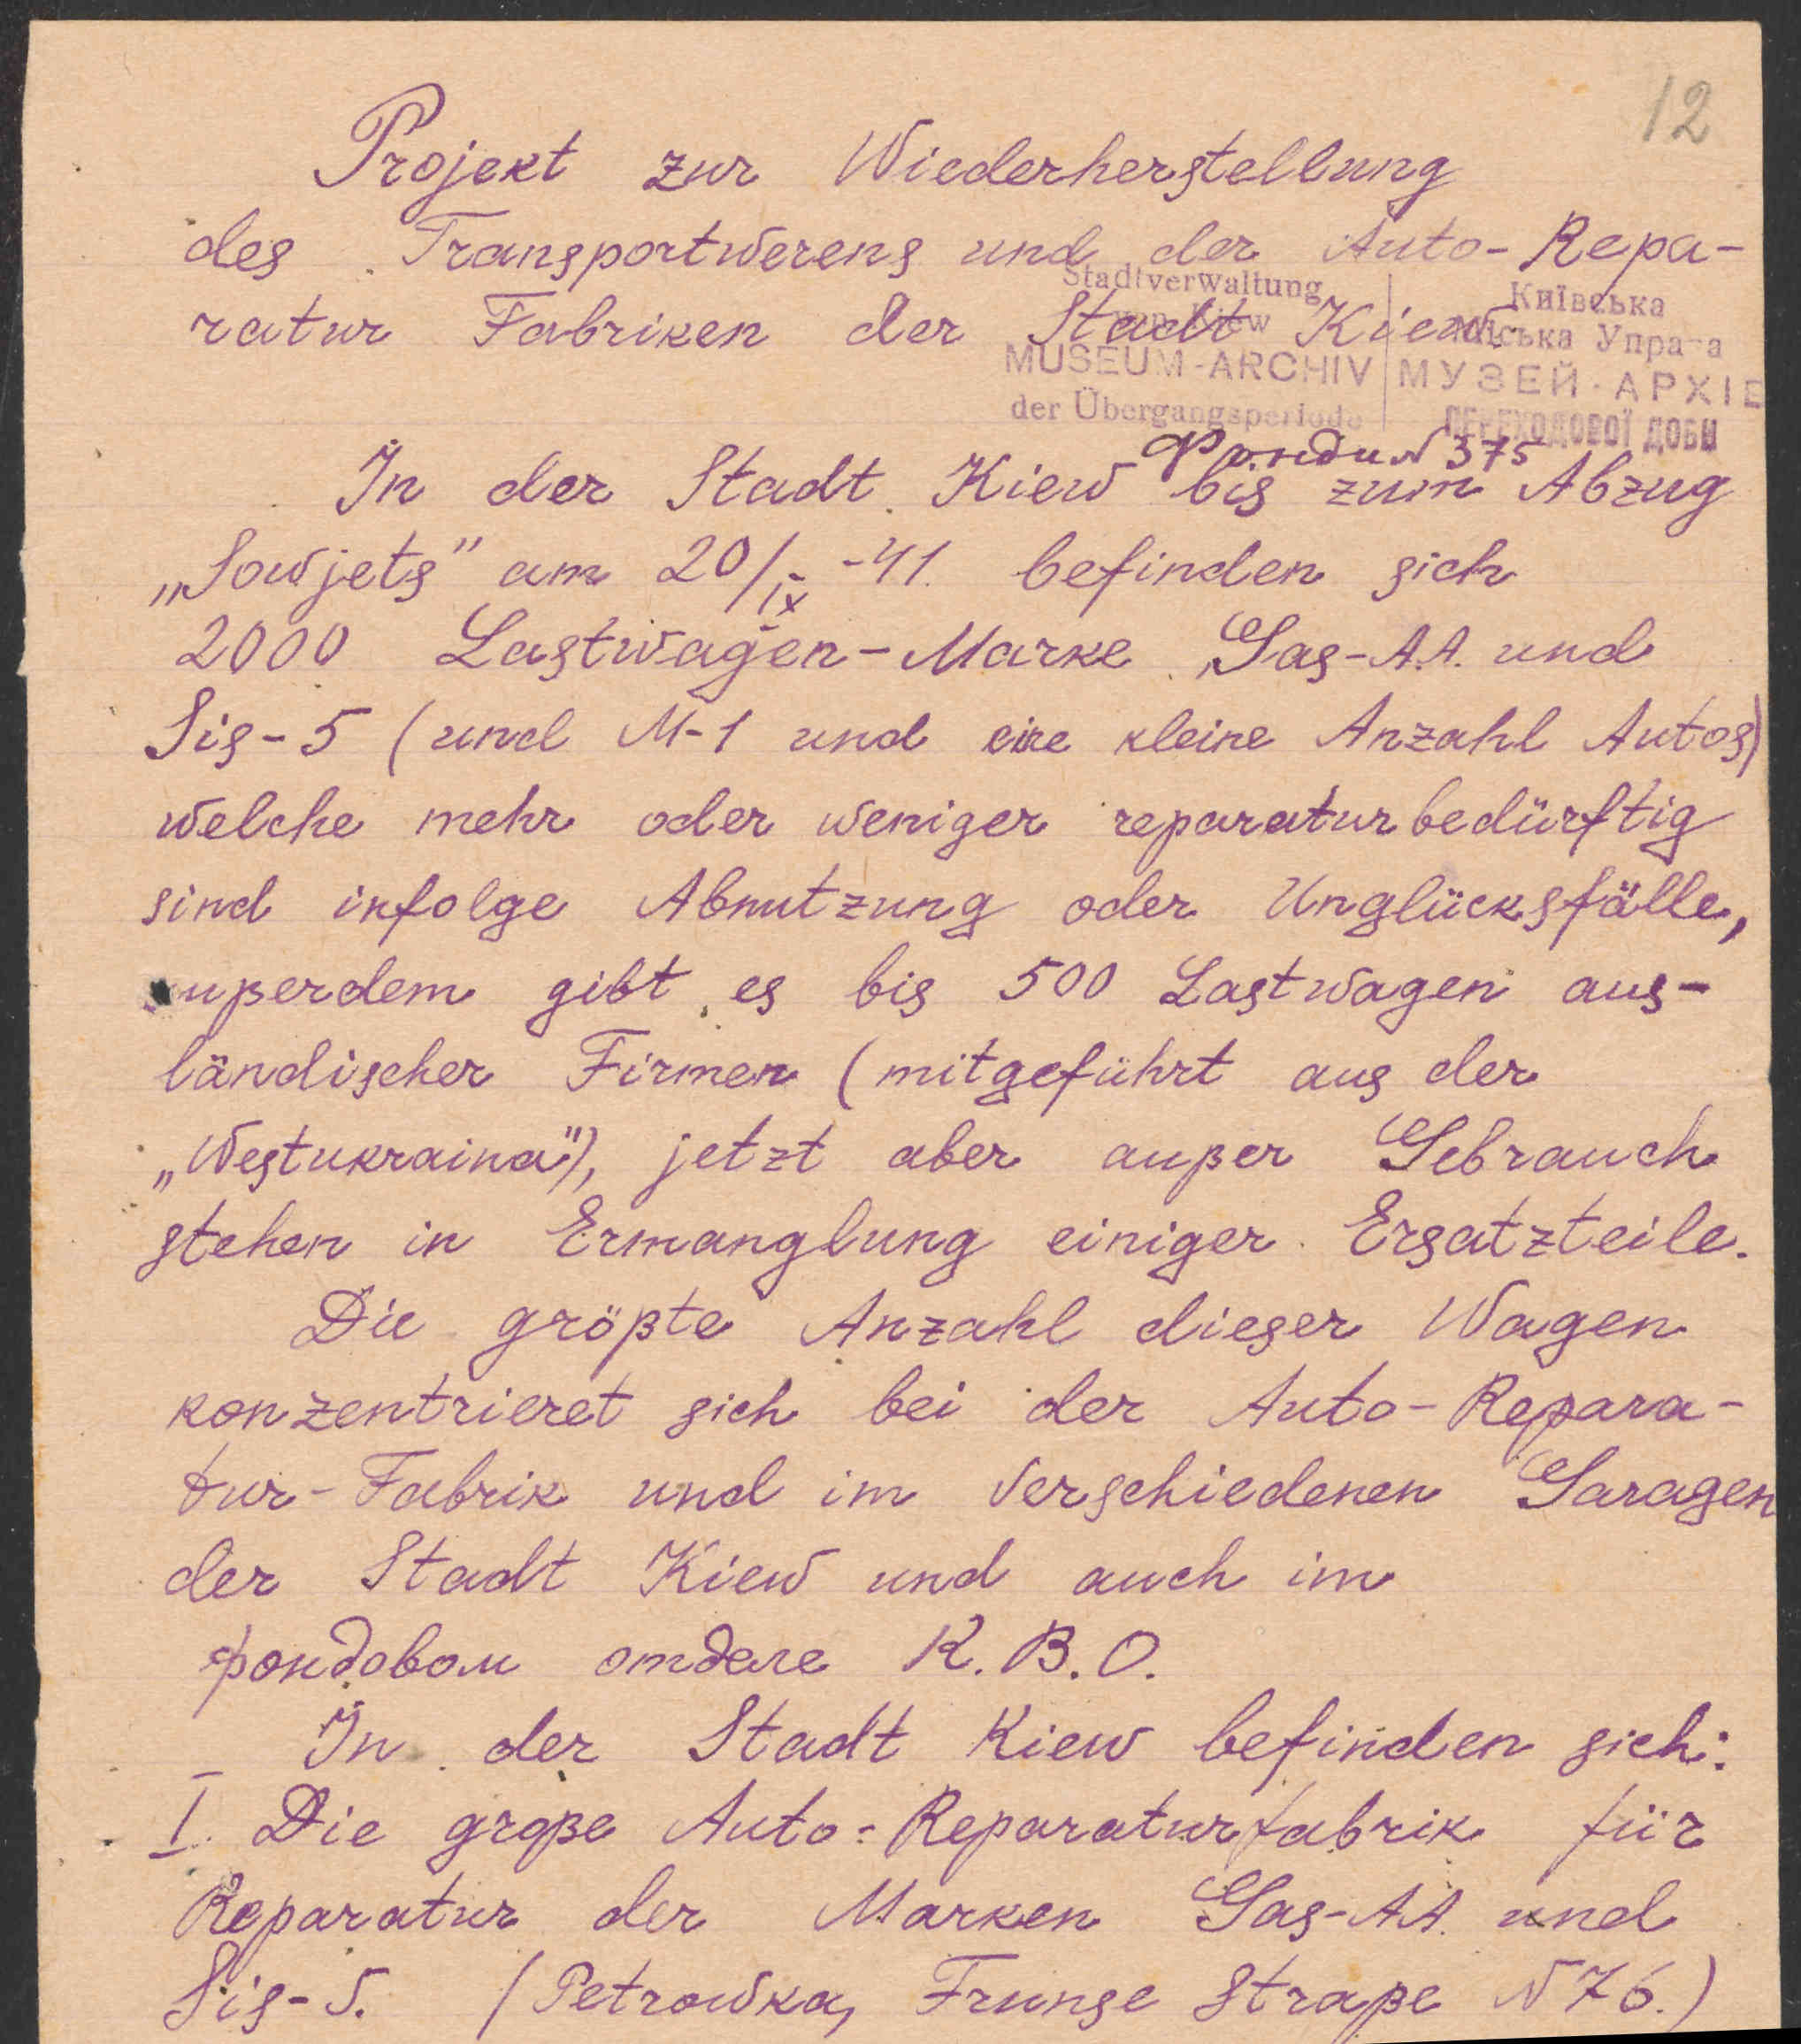 12
Projekt zur Wiederherstellung
des Transportwerens und der Auto-Repa-
ratur Fabriken der Stadt Kiew.
Stadtverwaltung
von Kiew
MUSEUM-ARCHIV
der Übergangsperiode
Київська
Міська Управа
МУЗЕЙ-АРХІВ
ПЕРЕХОДОВОЇ ДОБИ
N 375
In der Stadt Kiew bis zum Abzug
„Sowjets" am 20/IX-41. befinden sich
2000 Lastwagen-Marke Gas-A.A. und
Sis-5 (und M-1 und eine kleine Anzahl Autos)
welche mehr oder weniger reparaturbedürftig
sind infolge Abnutzung oder Unglücksfälle,
außerdem gibt es bis 500 Lastwagen aus-
ländischer Firmen (mitgeführt aus der
„Westukraina"), jetzt aber außer Gebrauch
stehen in Ermanglung einiger Ersatzteile.
Die größte Anzahl dieser Wagen
konzentrieret sich bei der Auto-Repara-
tur-Fabrik und im verschiedenen Garagen
der Stadt Kiew und auch im
фондовом отделе К.В.О.
In der Stadt Kiew befinden sich:
I. Die große Auto-Reparaturfabrik für
Reparatur der Marken Gas-A.A. und
Sis-5. (Petrowka, Frunse Straße N 76.)